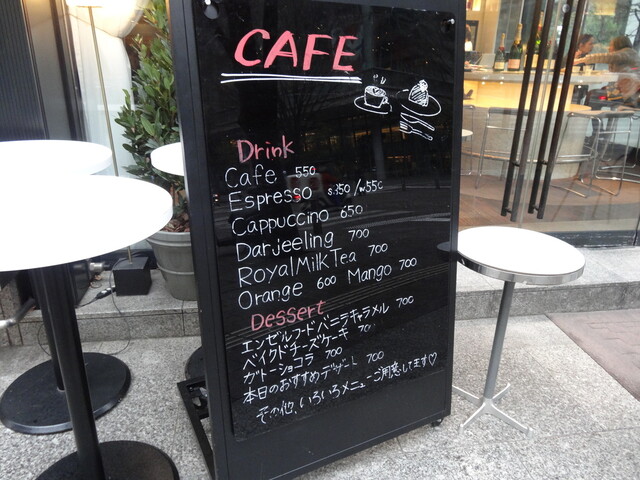 CAFE
Drink
Cafe 550
Espresso s350/w550
Cappuccino 650
Darjeeling 700
Royal Milk Tea 700
Orange 600 Mango 700
Dessert
エンゼルフードバニラキャラメル 700
ベイクドチーズケーキ 70
ガトーショコラ 700
本日のおすすめデザート 700
その他、いろいろメニューご用意してます♡